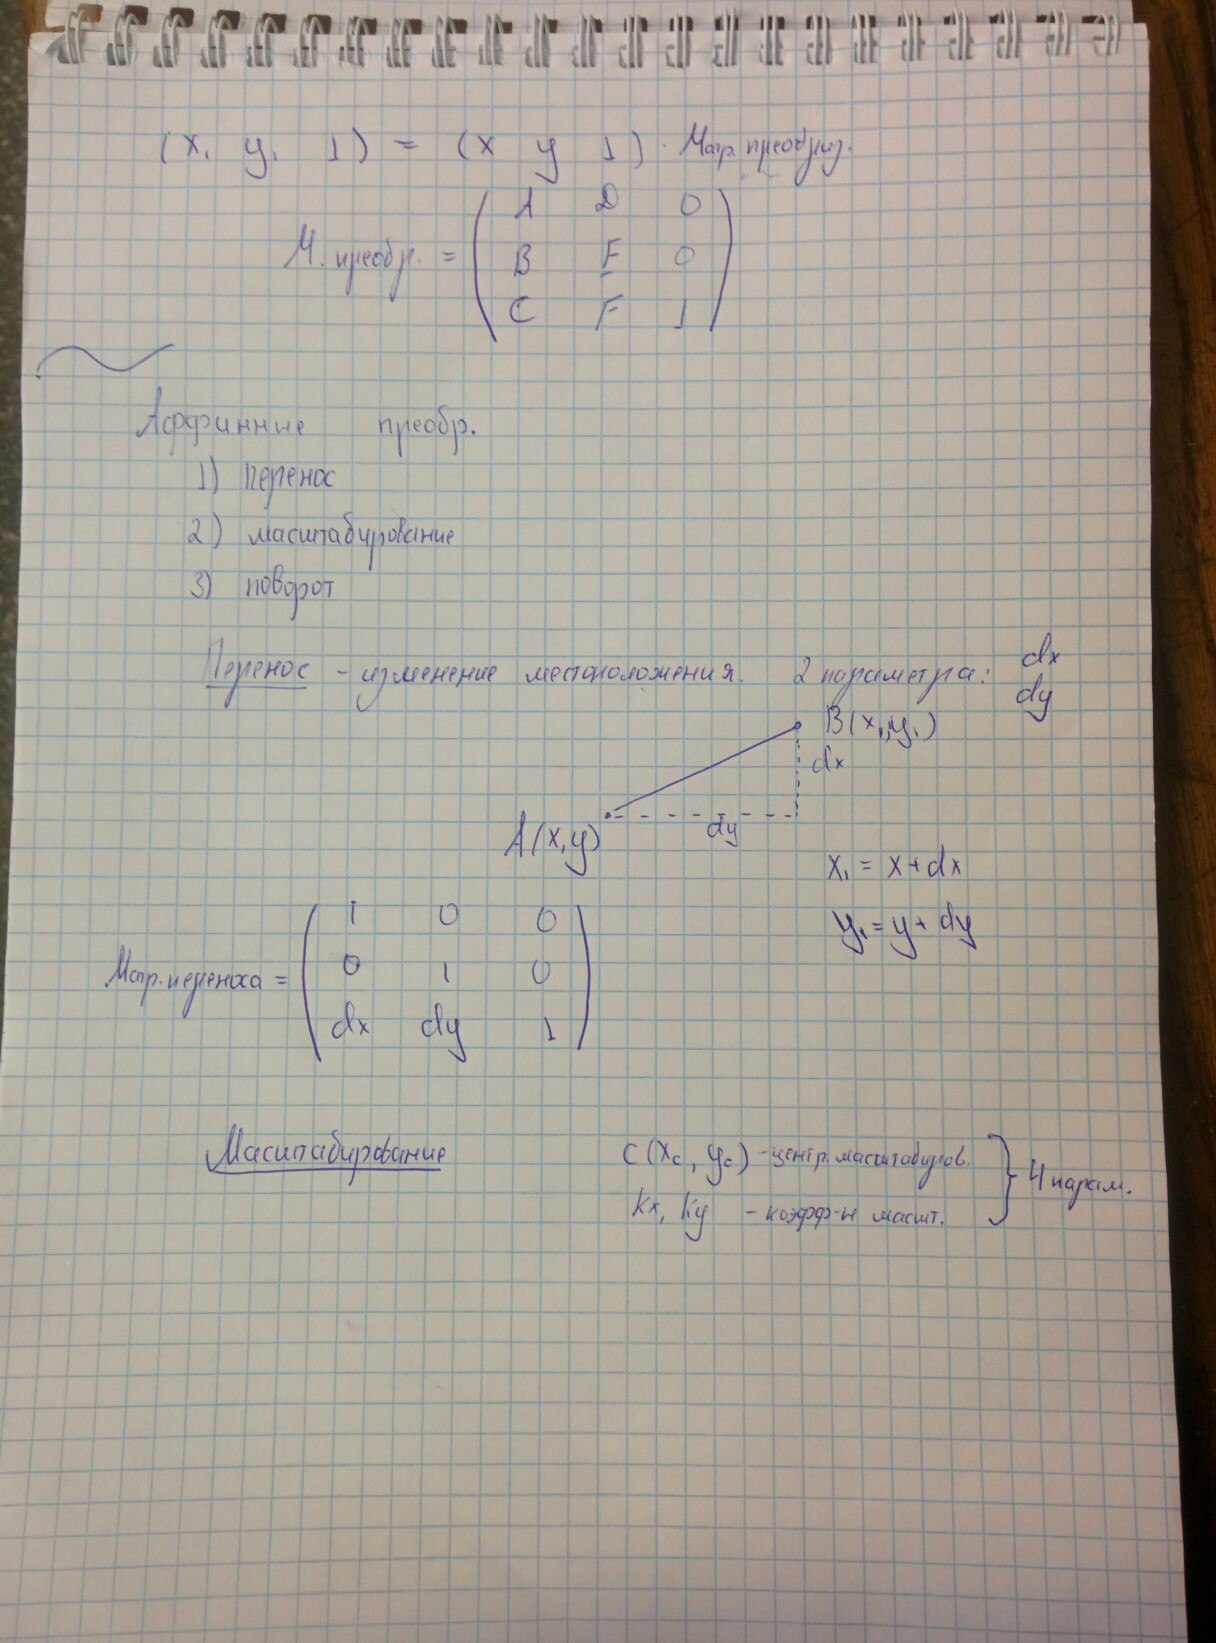 (x₁ y₁ 1) = (x y 1) · Матр. преобраз.
М. преобр. =
A D 0
B E 0
C F 1
Аффинные преобр.
1) перенос
2) масштабирование
3) поворот
Перенос – изменение местоположения. 2 параметра: dx
dy
B(x₁, y₁)
dx
A(x,y)
dy
x₁ = x + dx
y₁ = y + dy
Матр. переноса =
1 0 0
0 1 0
dx dy 1
Масштабирование
C(xc, yc) – центр. масштабиров.
kx, ky – коэфф-ы масшт.
} 4 парам.